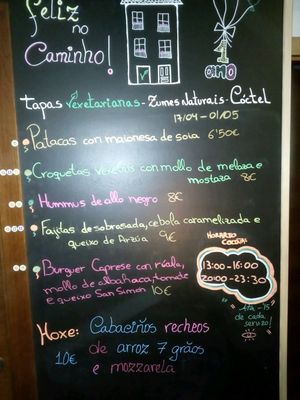 feliz
no
Caminho!
1
ano
Tapas vexetarianas - Zumes Naturais - Cóctel
17/04 - 01/05
Patacas con maionesa de soia 6'50€
Croquetas veletais con mollo de melaza e
mostaza 8€
Hummus de allo negro 8€
Fajitas de sobrasada, cebola caramelizada e
queixo de Arzúa 9€
HORARIO
COCIÑA:
13:00-16:00
20:00-23:30
Burguer Caprese con rúcula,
mollo de albahaca, tomate
e queixo San Simon 10€
de cada
servizo!
Hoxe: Cabaciños recheos
10€ de arroz 7 grãos
e mozzarela